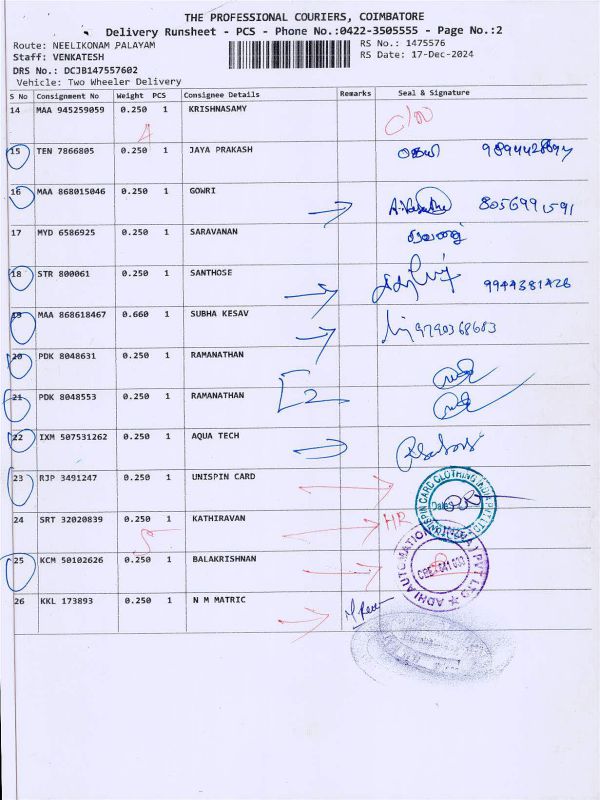 THE PROFESSIONAL COURIERS, COIMBATORE
Delivery Runsheet - PCS - Phone No.:0422-3505555 - Page No.:2
Route: NEELIKONAM PALAYAM RS No.: 1475576
Staff: VENKATESH RS Date: 17-Dec-2024
DRS No.: DCJB147557602
Vehicle: Two Wheeler Delivery
S No Consignment No Weight PCS Consignee Details Remarks Seal & Signature
14 MAA 945259059 0.250 1 KRISHNASAMY
4
15 TEN 7866805 0.250 1 JAYA PRAKASH
16 MAA 868015046 0.250 1 GOWRI 8056991591
17 MYD 6586925 0.250 1 SARAVANAN
18 STR 800061 0.250 1 SANTHOSE 9944381426
19 MAA 868618467 0.660 1 SUBHA KESAV 9790368683
20 PDK 8048631 0.250 1 RAMANATHAN
21 PDK 8048553 0.250 1 RAMANATHAN 2
22 IXM 507531262 0.250 1 AQUA TECH
23 RJP 3491247 0.250 1 UNISPIN CARD
24 SRT 32020839 0.250 1 KATHIRAVAN HR
5
25 KCM 50102626 0.250 1 BALAKRISHNAN
26 KKL 173893 0.250 1 N M MATRIC
UNISPIN CARD CLOTHING INDIA PVT LTD
Date
ADHI AUTOMATION PVT LTD